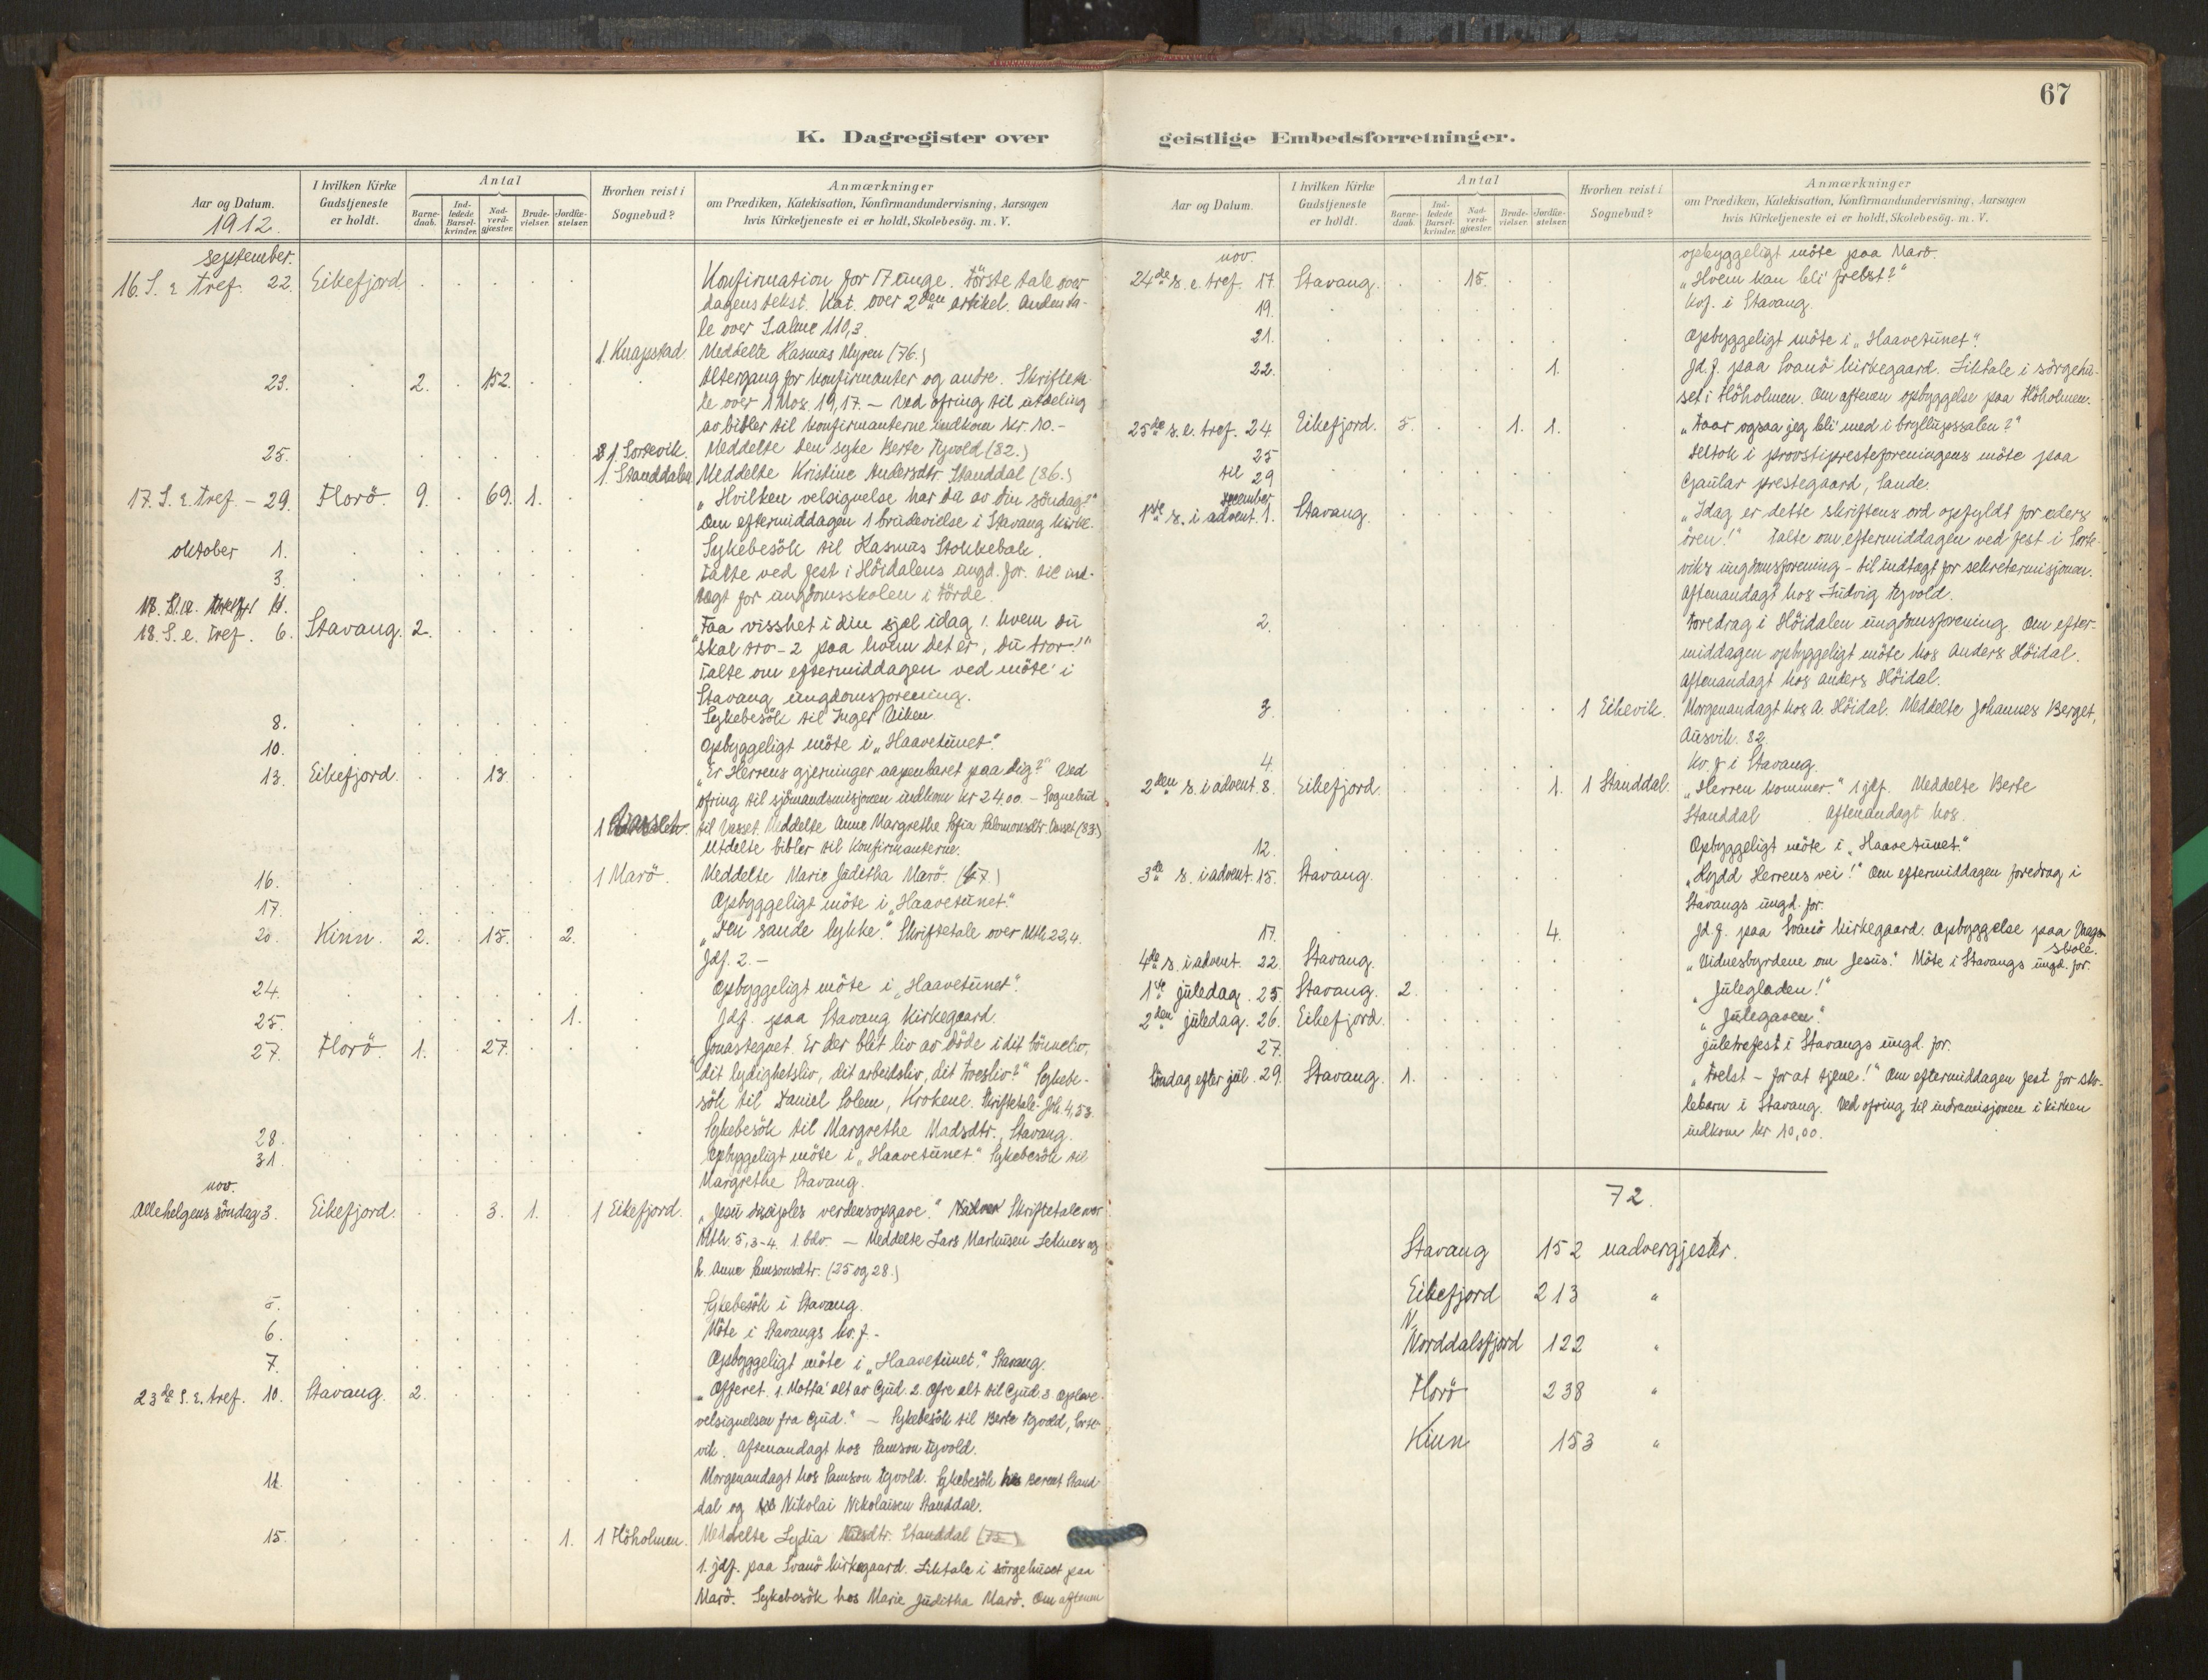 67
K. Dagregister over
Aar og Datum.
1912.
I hvilken Kirke Gudstjeneste er holdt.
Antal
Barne-daab.
Ind-ledede Barsel-kvinder.
Nad-verd-gjæster.
Brude-vielser.
Jordfæ-stelser.
Hvorhen reist i Sognebud?
Anmærkninger
om Prædiken, Katekisation, Konfirmandundervisning, Aarsagen
hvis Kirketjeneste ei er holdt, Skolebesög. m. V.
september.
16. S. e. tref. 22. Eikefjord Konfirmation for 17 unge. Förste tale over
dagens tekst. Kat. over 2den artikel. Anden ta-
le over Salme 119,3.
1 Knapstad. Meddelte Rasmus Myren (76.)
23. 2. 152. Altergang for konfirmanter og andre. Skrifteta-
le over 1 Mos. 19,17. – Ved ofring til utdeling
av bibler til konfirmanterne indkom kr. 10.–
25. 1 Sortevik. Meddelte den syke Berte Tyvold (82.)
1 Standdalen Meddelte Kristine Andersdtr. Standdal (86.)
17. S. e. tref. – 29. Florö. 9. 69. 1. „Hvilken velsignelse har du av din söndag?"
Om eftermiddagen 1 brudevielse i Stavang kirke.
oktober 1. Sykebesök til Rasmus Stokkebak.
3. Talte ved fest i Höidalens ungd. for. til ind-
tægt for ungdomsskolen i Förde.
18. S. e. tref. 6. Stavang. 2. „Faa visshet i din sjæl idag 1. hvem du
skal tro – 2 paa hvem det er, du tror!"
Talte om eftermiddagen ved möte i
Stavang ungdomsforening.
8. Sykebesök til Inger Aiken.
10. Opbyggeligt möte i „Haavetunet".
13. Eikefjord. 13. „Er Herrens gjerninger aapenbaret paa dig?" Ved
ofring til sjömandsmisjonen indkom kr 24.00. – Sognebud
1 til Vasset. Meddelte Anne Margrethe Sofia Salomonsdtr. Vasset (83.)
Utdelte bibler til konfirmanterne.
16. 1 Marö. Meddelte Marie Juditha Marö.
17. Opbyggeligt möte i „Haavetunet."
20. Kinn. 2. 15. 2. „Den sande lykke." Skriftetale over Mth 22,4.
Jdf. 2. –
24. Opbyggeligt möte i „Haavetunet".
25. 1. Jdf. paa Stavang kirkegaard.
27. Florö. 1. 27. „Jonastegnet. Er der blit liv av döde i dit bönneliv,
dit lydighetsliv, dit arbeidsliv, dit troesliv?" Sykebe-
sök til Daniel Solem, Krokene. Skriftetale Joh. 4,53.
28. Sykebesök til Margrethe Madsdtr., Stavang.
31. Opbyggeligt möte i „Haavetunet." Sykebesök til
Margrethe Stavang.
nov.
Allehelgens söndag 3. Eikefjord. 3. 1. 1 Eikefjord. „Jesu disciples verdensopgave." Skriftetale over
Mth. 5,3-4. 1. bdv. – Meddelte Lars Markusen Setnes og
h. Anne Samsonsdtr. (25 og 28.)
5. Sykebesök i Stavang.
6. Möte i Stavangs kv. f. –
7. Opbyggeligt möte i „Haavetunet." Stavang.
23de S. e. tref. 10. Stavang. 2. „Offeret. 1. Motta alt av Gud. 2. Ofre alt til Gud. 3 Opleve
velsignelsen fra Gud." – Sykebesök til Berte Tyvold, Sorte-
vik. Aftenandagt hos Samson Tyvold.
11. Morgenandagt hos Samson Tyvold. Sykebesök hos Berent Stand-
dal og Nikolai Nikolaisen Standdal.
15. 1. 1 Höholmen. Meddelte Lydia Nilsdtr. Standdal
1. jdf. paa Svanö kirkegaard. Liktale i sörgehuset paa
Marö. Sykebesök hos Marie Juditha Marö. Om aftenen
geistlige Embedsforretninger.
Aar og Datum.
I hvilken Kirke Gudstjeneste er holdt.
Antal
Barne-daab.
Ind-ledede Barsel-kvinder.
Nad-verd-gjæster.
Brude-vielser.
Jordfæ-stelser.
Hvorhen reist i Sognebud?
Anmærkninger
om Prædiken, Katekisation, Konfirmandundervisning, Aarsagen
hvis Kirketjeneste ei er holdt, Skolebesög. m. V.
opbyggeligt möte paa Marö.
nov.
24de s. e. tref. 17. Stavang. 15. „Hvem kan bli frelst?"
19. Kvf. i Stavang.
21. Opbyggeligt möte i „Haavetunet".
22. 1. Jd. f. paa Svanö kirkegaard. Liktale i sörgehu-
set i Höholmen. Om aftenen opbyggelse paa Höholmen.
25de s. e. tref. 24. Eikefjord. 5. 1. 1. „Faar ogsaa jeg bli med i bryllupssalen?"
25 til 29 Deltok i provstiprestеforeningens möte paa
Gaular prestegaard, Sande.
december
1ste s. i advent. 1. Stavang. „Idag er dette skriftens ord opfyldt for eders
ören!" Talte om eftermiddagen ved fest i Sorte-
viks ungdomsforening – til indtægt for sekretærmisjonen.
Aftenandagt hos Ludvig Tyvold.
2. Foredrag i Höidalen ungdomsforening. Om efter-
middagen opbyggeligt möte hos Anders Höidal.
Aftenandagt hos Anders Höidal.
3. 1 Eikevik. Morgenandagt hos A. Höidal. Meddelte Johannes Berget,
Ausvik. 82.
4. Kv. f i Stavang.
2den s. i advent. 8. Eikefjord. 1. 1 Standdal. „Herren kommer." 1 jdf. Meddelte Berte
Standdal . Aftenandagt hos.
12. Opbyggeligt möte i „Haavetunet."
3de s. i advent. 15. Stavang. „Rydd Herrens vei!" Om eftermiddagen foredrag i
Stavangs ungd. for.
17. 4. Jd. f. paa Svanö kirkegaard. Opbyggelse paa Vaags
skole.
4de s. i advent. 22. Stavang. „Vidnesbyrdene om Jesus." Möte i Stavangs ungd. for.
1ste juledag. 25. Stavang. 2. „Juleglæden!"
2den juledag. 26. Eikefjord. „Julegaven."
27. Juletrefest i Stavangs ungd. for.
Söndag efter jul. 29. Stavang. 1. „Frelst – for at tjene!" Om eftermiddagen fest for sko-
lebarn i Stavang. Ved ofring til indremisjonen i kirken
indkom kr 10,00.
72.
Stavang 152 nadvergjester.
Eikefjord 213 "
N.
Norddalsfjord 122 "
Florö 238 "
Kinn 153 "